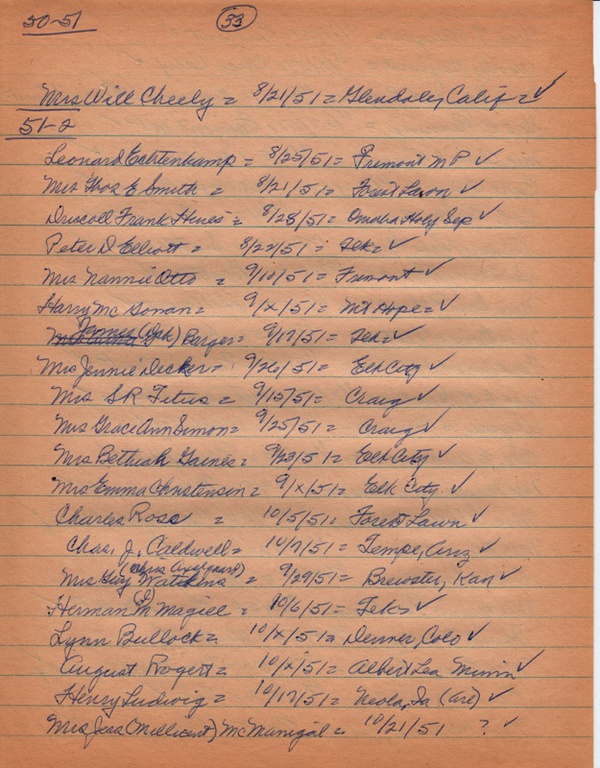 50-51 33
Mrs Will Cheely = 8/21/51 = Glendale, Calif = ✓
51-2
Leonard = 8/25/51 = Fremont M P ✓
Mrs Thos E Smith = 8/21/51 = Forest Lawn ✓
Driscoll Frank Hines = 8/28/51 = Omaha Holy Sep ✓
Peter D Elliott = 8/22/51 = Tek = ✓
Mrs Nannie Otto = 9/10/51 = Fremont ✓
Harry Mc Gonan = 9/x/51 = Mt Hope = ✓
James (Dak) Barger = 9/17/51 = Tek = ✓
Mrs Jennie Decker = 9/26/51 = Elk City ✓
Mrs S R Titus = 9/15/51 = Craig ✓
Mrs Grace Ann Simon = 9/25/51 = Craig ✓
Mrs Bethiah Gaines = 9/23/51 = Elk City ✓
Mrs Emma Christensen = 9/x/51 = Elk City. ✓
Charles Ross = 10/5/51 = Forest Lawn ✓
Chas. J. Caldwell = 10/7/51 = Tempe, Ariz ✓
Mrs Guy Watchens = 9/29/51 = Brewster, Kan ✓
Herman M Magill = 10/6/51 = Teks ✓
Lynn Bullock = 10/x/51 = Denver, Colo ✓
August Rogert = 10/x/51 = Albert Lea Minn ✓
Henry Ludwig = 10/17/51 = Neola, Ia ✓
Mrs Jess (Millicent) McManigal = 10/21/51 ? ✓